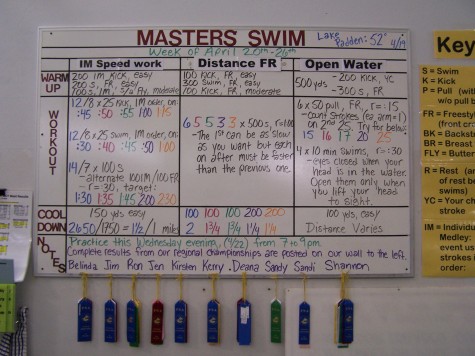 MASTERS SWIM
Lake Padden: 52° 4/19
Week of April 20th-26th
IM Speed work
Distance FR
Open Water
WARM UP
200 IM Kick, easy
200 s, FR, easy
100 Kick, FR, easy
300 Swim, FR, easy
100 Kick, FR, moderate
500 yds
-200 Kick, YC
-300 swim, FR
WORKOUT
12/8 x 25 Kick, IM order, on:
:45 :50 :55 1:00 1:15
12/8 x 25 swim, IM order, on:
:30 :40 :45 :50 1:00
14/7 x 100s
-alternate 100IM/100FR
-r=:30, target:
1:30 1:35 1:45 2:00 2:30
6 5 5 3 3 x 500s, r=:100
-The 1st can be as slow
as you want but each
on after must be faster
than the previous one.
6 x 50 pull, FR, r=:15
-Count Strokes (ea arm=1)
on 2nd 25. Try for below:
15 16 17 20 25
4 x 10 min swims, r=:30
-eyes closed when your
head is in the water.
Open them only when
you lift your head
to sight.
COOL DOWN
150 yds easy
2650/1750 = 1 1/2 / 1 miles
100 100 100 200 200
2 1 3/4 1 3/4 1 1/4 1 1/4
100 yds, easy
Distance Varies
NOTES
Practice this Wednesday evening, (4/22) from 7 to 9pm.
Complete results from our regional championships are posted on our wall to the left.
Belinda Jim Ron Jen Kirsten Kerry Deana Sandy Sandi Shannon
Key
S = Swim
K = Kick
P = Pull (with
w/o pull
FR = Freestyle
(front
BK = Backst
BR = Breast
FLY = Butter
R = Rest (
of rest be
swims)
YC = Your ch
stroke
IM = Individual
Medley:
event us
strokes i
order: